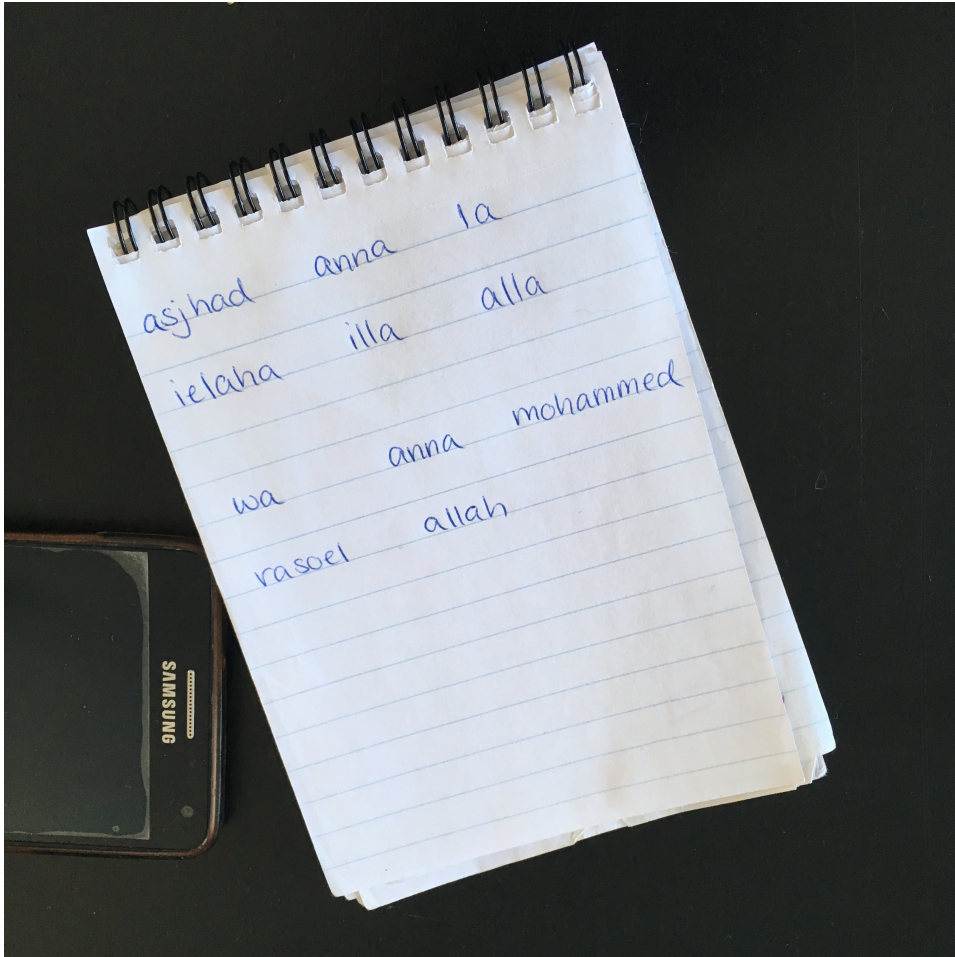 asjhad anna la
ielaha illa alla
wa anna mohammed
rasoel allah
SAMSUNG